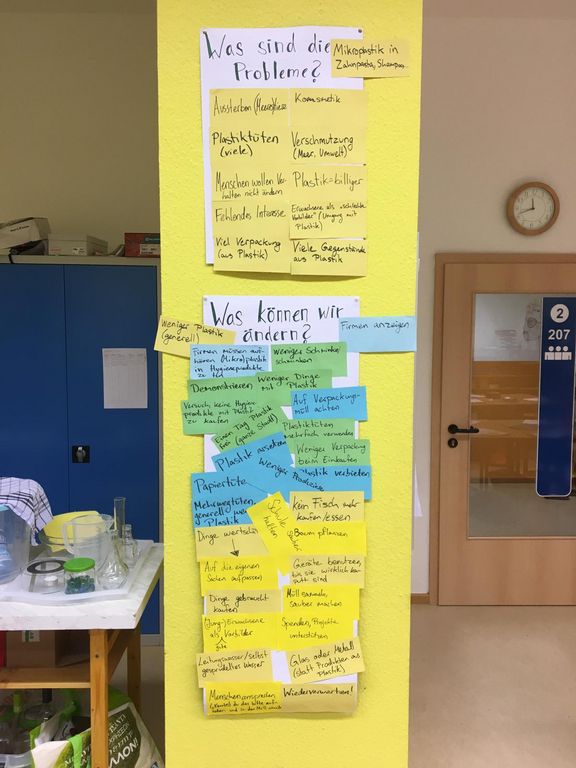 Was sind die
Probleme?
Mikroplastik in
Zahnpasta, Shampoo...
Aussterben (Meeres)tiere
Kosmetik
Plastiktüten
(viele)
Verschmutzung
(Meer, Umwelt)
Menschen wollen Ver-
halten nicht ändern
Plastik=billiger
Fehlendes Interesse
Erwachsene als "schlechte
Vorbilder" (Umgang mit
Plastik)
Viel Verpackung
(aus Plastik)
Viele Gegenstände
aus Plastik
Was können wir
ändern?
Weniger Plastik
(generell)
Firmen anzeigen
Firmen müssen auf-
(Mikro)plastik
in Hygieneprodukte
zu tun
Weniger Schminke/
schminken
Demonstrieren
Weniger Dinge
mit Plastik
Versuch, keine Hygiene
produkte mit Plastik
zu kaufen
Einen Tag Plastik
frei (ganze Stadt)
Auf Verpackung-
müll achten
Plastiktüten
mehrfach verwenden
Plastik ersetzen
Weniger Verpackung
beim Einkaufen
Weniger Produkte
Plastik verbieten
Papiertüte
Mehrwegtüten,
generell
Plastik
Schule
halten
kein Fisch mehr
kaufen/essen
Dinge
Baum pflanzen
Auf die eigenen
Sachen aufpassen
Geräte benutzen,
bis sie wirklich ka-
putt sind
Dinge gebraucht
kaufen
Müll sammeln,
sauber machen
(Jung-) Erwachsene
als Vorbilder
gute
Spenden, Projekte
unterstützen
Leitungswasser/selbst
gesprudeltes Wasser
Glas oder Metall
(statt Produkten aus
Plastik)
Menschen ansprechen
Wiederverwerten!
2
207